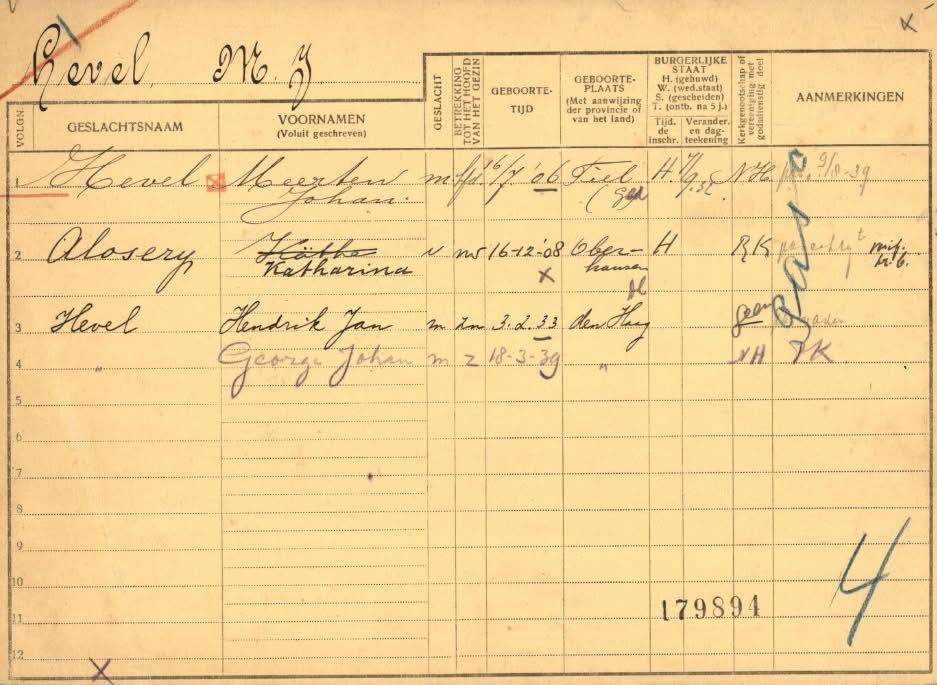 Hevel, M. J.
VOLGN.
GESLACHTSNAAM
VOORNAMEN
(Voluit geschreven)
GESLACHT
BETREKKING
TOT HET HOOFD
VAN HET GEZIN
GEBOORTE-
TIJD
GEBOORTE-
PLAATS
(Met aanwijzing
der provincie of
van het land)
BURGERLIJKE
STAAT
H. (gehuwd)
W. (wed.staat)
S. (gescheiden)
T. (ontb. na 5 j.)
Tijd.
de
inschr.
Verander.
en dag-
teekening
Kerkgenootschap of
vereeniging met
godsdienstig doel
AANMERKINGEN
1 Hevel Meerten m hfd. 16/7 '06 Tiel H. NH 9/8-39
Johan. Gld
2 Alosery Käthe v 16-12-'08 Ober- H RK
Katharina hausen
x Dl
3 Hevel Hendrik Jan m zn 3.2.33 den Haag geen
4 " George Johan m z 18-3-39 " NH PK
gas
5
6
7
8
9
10
11
12
179894
4
x